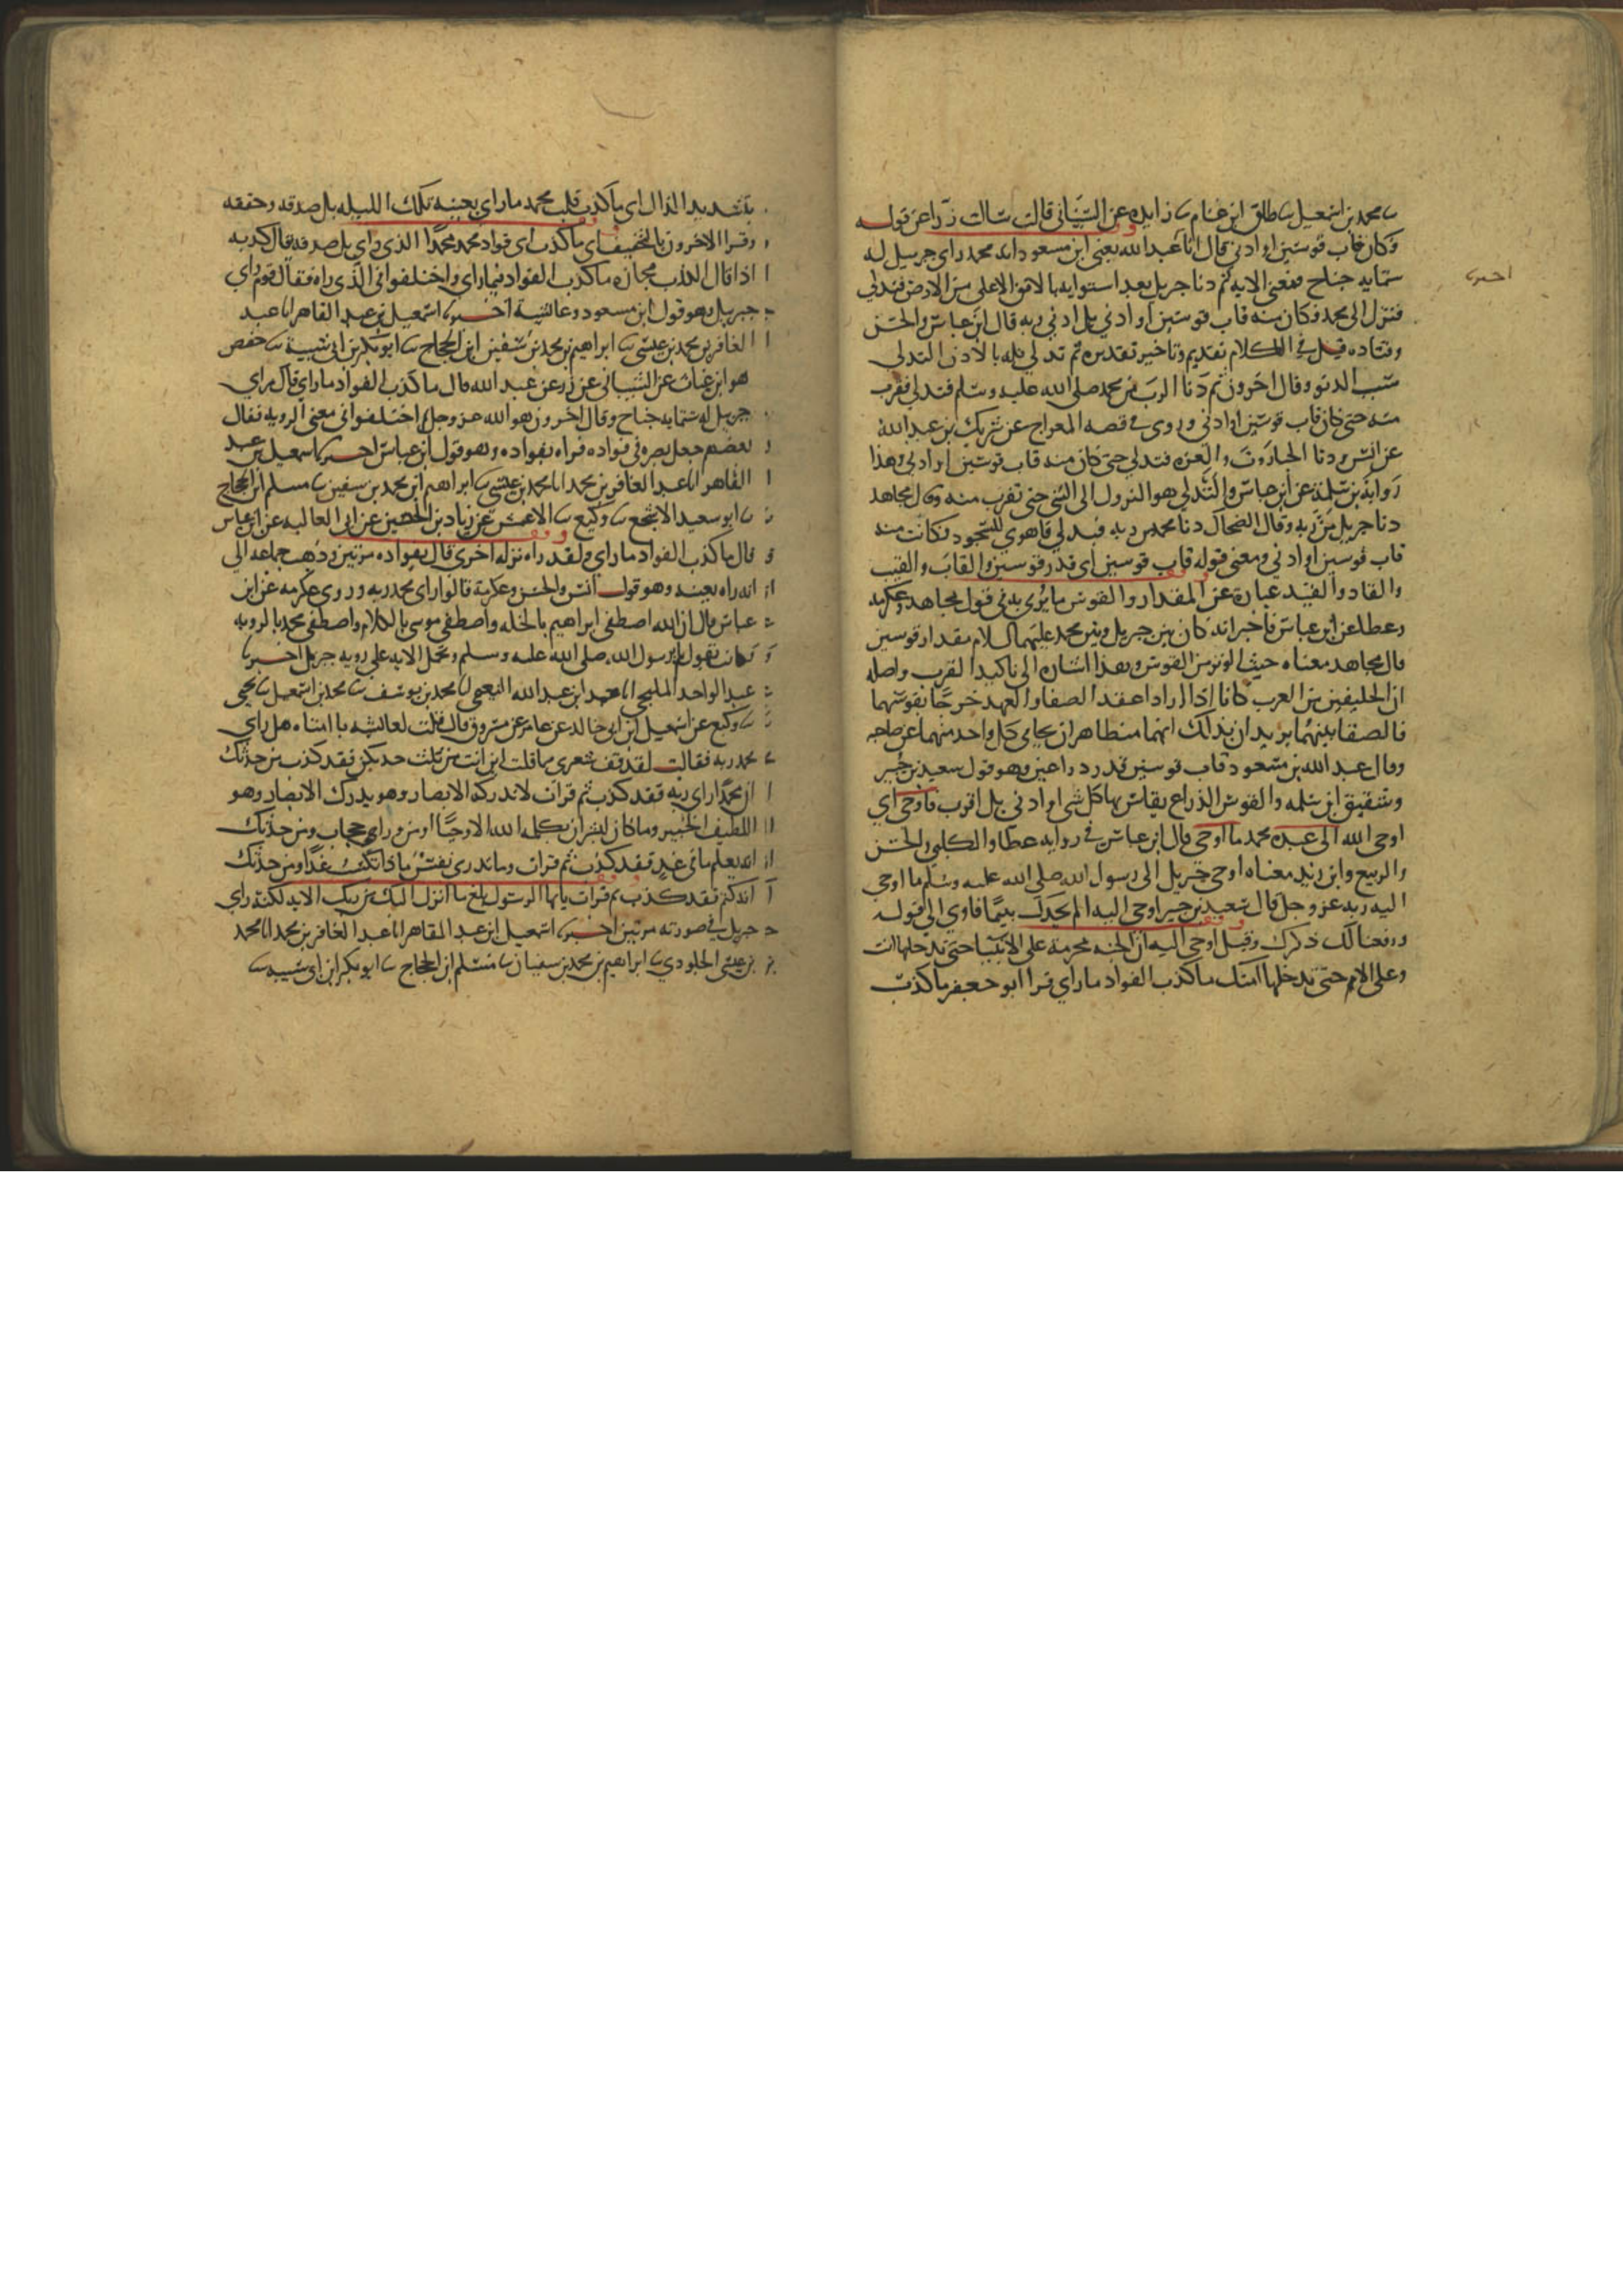 ثنا محمد بن اسمعيل ثنا طلق ابن غنام ثنا زايده عن الشيباني قالت سالت زرا عن قوله
فكان قاب قوسين او ادني قال انا عبد الله يعني ابن مسعود انه محمد راى جبريل له
ستمايه جناح فمعنى الايه ثم دنا جبريل بعد استوايه بالافق الاعلى من الارض فتدلي
اخبرنا
فنزل الى محمد فكان منه قاب قوسين او ادني بل ادني وبه قال ابن عباس والحسن
وقتاده قيل في الكلام تقديم وتاخير تقديره ثم تدلي فدنا لان التدلي
سبب الدنو وقال اخرون ثم دنا الرب من محمد صلى الله عليه وسلم فتدلي فقرب
منه حتى كان قاب قوسين او ادني وروى في قصه المعراج عن شريك بن عبد الله
عن انس ودنا الجبار رب العزه فتدلي حتى كان منه قاب قوسين او ادني وهذا
روايه بن سلمة عن ابن عباس والتدلي هو النزول الى الشي حتى تقرب منه وقال مجاهد
دنا جبريل من ربه وقال الضحاك دنا محمد من ربه فتدلي فاهوي للسجود فكانت منه
قاب قوسين او ادني ومعنى قوله قاب قوسين اى قدر قوسين والقاب والقيب
والقاد والقيد عبارة عن المقدار والقوس ما يرمى به في قول مجاهد وعكرمه
وعطا عن ابن عباس فاخبر انه كان بين جبريل وبين محمد عليهما السلام مقدار قوسين
قال مجاهد معناه حيث الوتر من القوس وهذا اشاره الى تاكيد القرب واصله
ان الحليفين من العرب كانا اذا ارادا عقد الصفا والعهد خرجا بقوسهما
فالصقا بينهما يريدان بذلك انهما متظاهران يحامى كل واحد منهما عن صاحبه
وقال عبد الله بن مسعود قاب قوسين قدر ذراعين وهو قول سعيد بن جبير
وشقيق ابن سلمه والقوس الذراع يقاس بها كل شي او ادني بل اقرب فاوحى اي
اوحى الله الى عبده محمد ما اوحى قال ابن عباس في روايه عطا والكلبي والحسن
والربيع وابن زيد معناه اوحى جبريل الى رسول الله صلى الله عليه وسلم ما اوحى
اليه ربه عز وجل قال سعيد بن جبير اوحى اليه الم يجدك يتيما فاوي الى قوله
ورفعنا لك ذكرك وقيل اوحى اليه ان الجنه محرمة على الانبيا حتى تدخلها انت
وعلى الامم حتى تدخلها امتك ما كذب الفواد ما راي قرا ابو جعفر ما كذب
بتشديد الذال اي ما كذب قلب محمد ما راي بعينه تلك الليله بل صدقه وحققه
وقرا الاخرون بالتخفيف اي ما كذب اى فواد محمد محمدا الذى راي بل صدقه قال كذبه
اذا قال الكذب مجازه ما كذب الفواد فيما راى واختلفوا في الذى راه فقال قوم راي
جبريل وهو قول ابن مسعود وعائشة اخبرنا اسمعيل بن عبد القاهر انا عبد
الغافر بن محمد بن عيسى ثنا ابراهيم بن محمد بن سفين ابن الحجاج ثنا ابو بكر بن ابي شيبة ثنا حفص
هو ابن غياث عن الشيباني عن زر عن عبد الله قال ما كذب الفواد ما راى قال راي
جبريل له ستمايه جناح وقال اخرون هو الله عز وجل ثم اختلفوا في معنى الرويه فقال
بعضهم جعل بصره في فواده فراه بفواده وهو قول ابن عباس اخبرنا اسمعيل بن عبد
القاهر انا عبد الغافر بن محمد انا محمد بن عيسى ثنا ابراهيم ابن محمد بن سفين ثنا مسلم ابن الحجاج
ثنا ابو سعيد الاشج ثنا وكيع ثنا الاعمش عن زياد بن الحصين عن ابي العاليه عن ابن عباس
قال ما كذب الفواد ما راى ولقد راه نزله اخرى قال بفواده مرتين وذهب جماعه الي
انه راه بعينه وهو قول انس والحسن وعكرمة قالوا راى محمد ربه وروى عكرمه عن ابن
عباس قال ان الله اصطفى ابراهيم بالخله واصطفى موسى بالكلام واصطفى محمد بالرويه
وكانت تقول لم ير رسول الله صلى الله عليه وسلم وتحمل الايه على رويه جبريل اخبرنا
عبد الواحد المليحي انا عبد ابن عبد الله النعيمي انا محمد بن يوسف ثنا محمد بن اسمعيل ثنا يحيى
ثنا وكيع عن اسمعيل ابن ابي خالد عن عامر عن مسروق قال قلت لعائشه يا امتاه هل راي
محمد ربه فقالت لقد قف شعرى مما قلت اين انت من ثلث حدثكهن فقد كذب من حدثك
ان محمدا راي ربه فقد كذب ثم قرات لا تدركه الابصار وهو يدرك الابصار وهو
اللطيف الخبير وما كان لبشر ان يكلمه الله الا وحيا او من وراي حجاب ومن حدثك
انه يعلم ما في غد فقد كذب ثم قرات وما تدرى نفس ماذا تكسب غدا ومن حدثك
انه كتم فقد كذب ثم قرات يايها الرسول بلغ ما انزل اليك من ربك الايه لكنه راي
جبريل في صورته مرتين اخبرنا اسمعيل ابن عبد القاهر انا عبد الغافر بن محمد انا محمد
بن عيسى الجلودي ثنا ابراهيم بن محمد بن سفيان ثنا مسلم ابن الحجاج ثنا ابو بكر ابن ابي شيبه ثنا